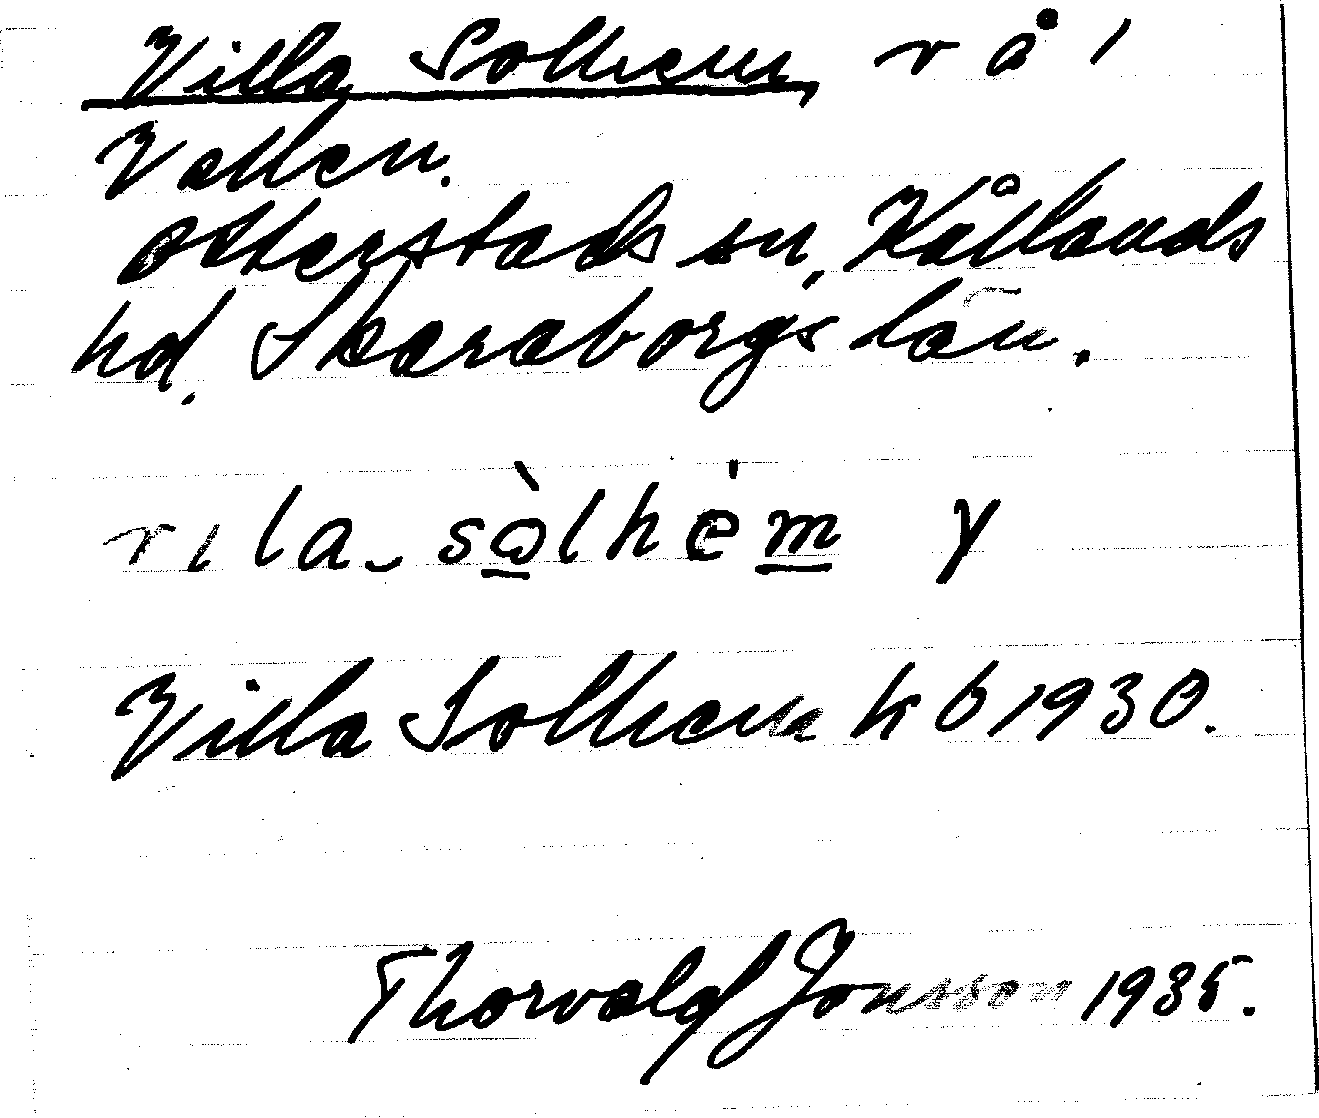 Villa Solhem, v å i
Vallen.
Otterstads sn, Kållands
hd. Skaraborgs län.
vıla‿sòlhém y
Villa Solhem kb 1930.
Thorvald Jonsson 1935.